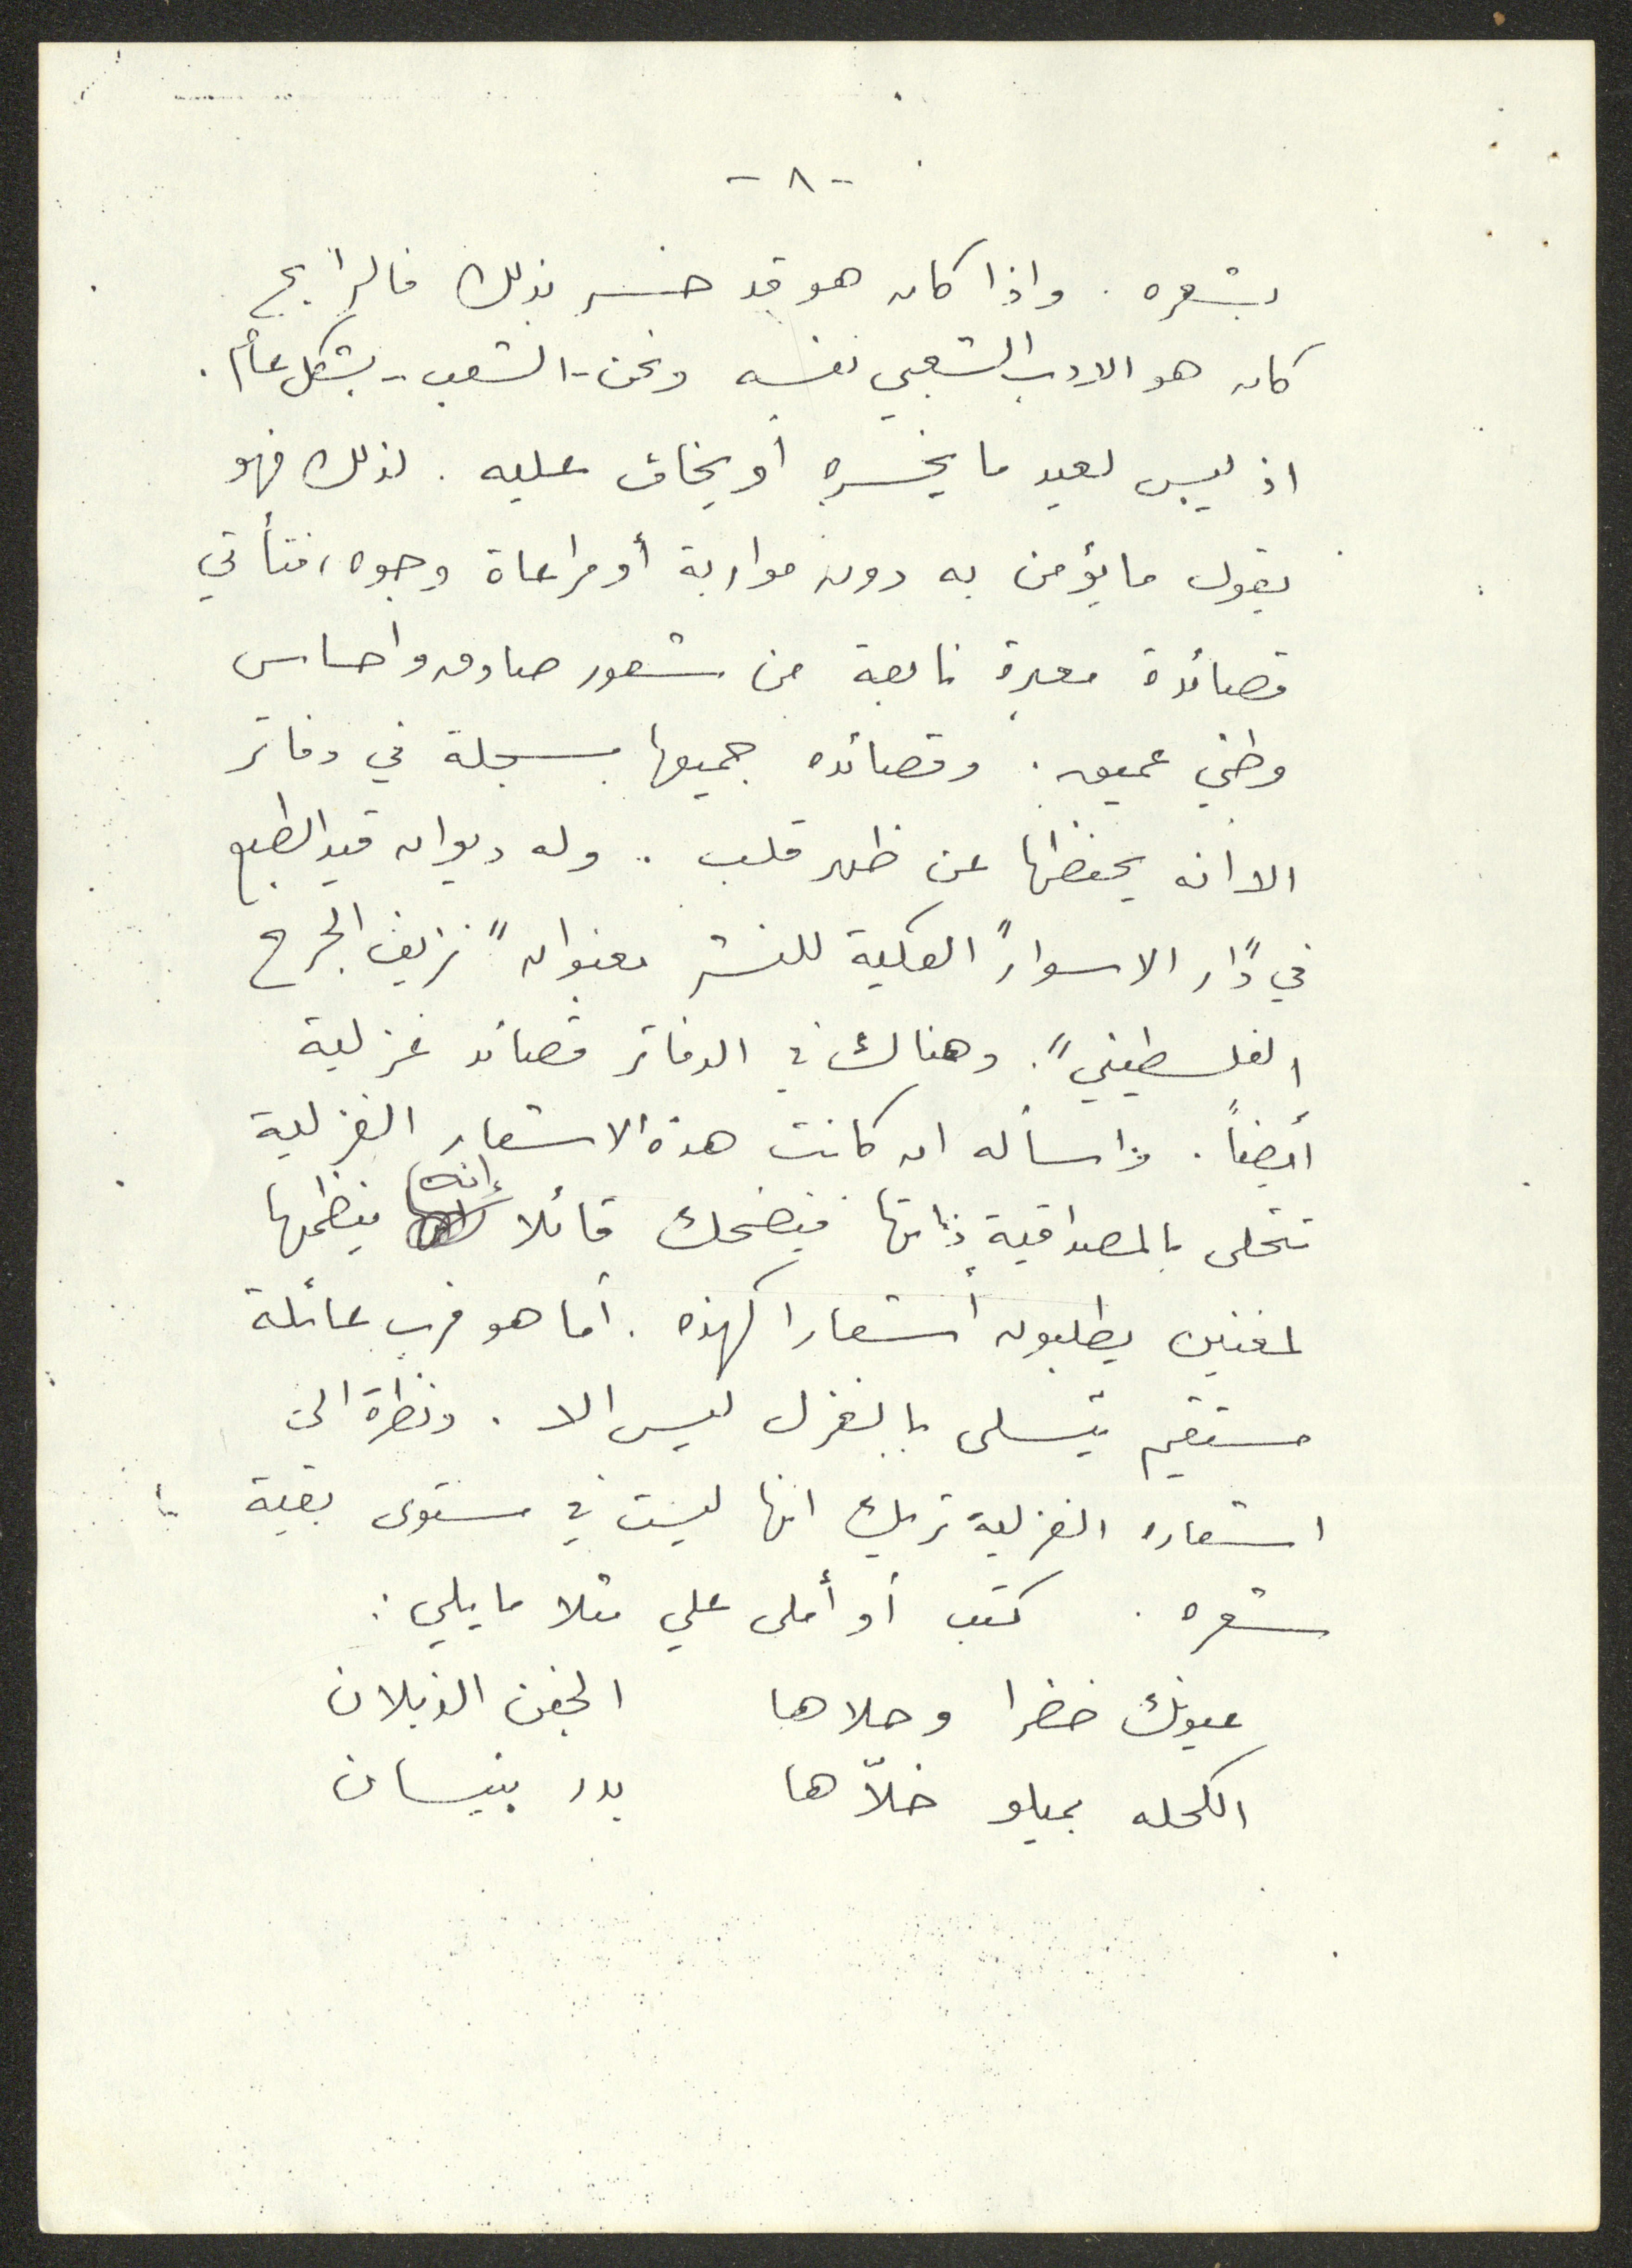 - ٨ -
بشعره . واذا كان هو قد خسر بذلك فالرابح
كان هو الادب الشعبي نفسه ونحن - الشعب - بشكل عام .
اذ ليس لعيد ما يخسره أو يخاف عليه . لذلك فهو
يقول ما يؤمن به دون مواربة أو مراعاة وجوه ، فتأتي
قصائدة معبرة نابعة من شعور صادق واحساس
وطني عميق . وقصائده جميعها مسجلة في دفاتر
الا انه يحفظها عن ظهر قلب .. وله ديوان قيد الطبع
في "دار الاسوار" العكية للنشر بعنوان "نزيف الجرح
الفلسطيني" . وهناك في الدفاتر قصائد غزلية
أيضاً . واسأله ان كانت هذه الاشعار الغزلية
تتحلى بالمصداقية ذاتها فيضحك قائلا إنه ينظمها
لمغنين يطلبون أشعارا كهذه . أما هو فرب عائلة
مستقيم يتسلى بالغزل ليس الا . ونظرة الى
اشعاره الغزلية تريك انها ليست في مستوى بقية
شعره . كتب أو أملى علي مثلا ما يلي :
عيونك خضرا وحلاها الجفن الذبلان
الكحله بميلو خلاّها بدر بنيسان